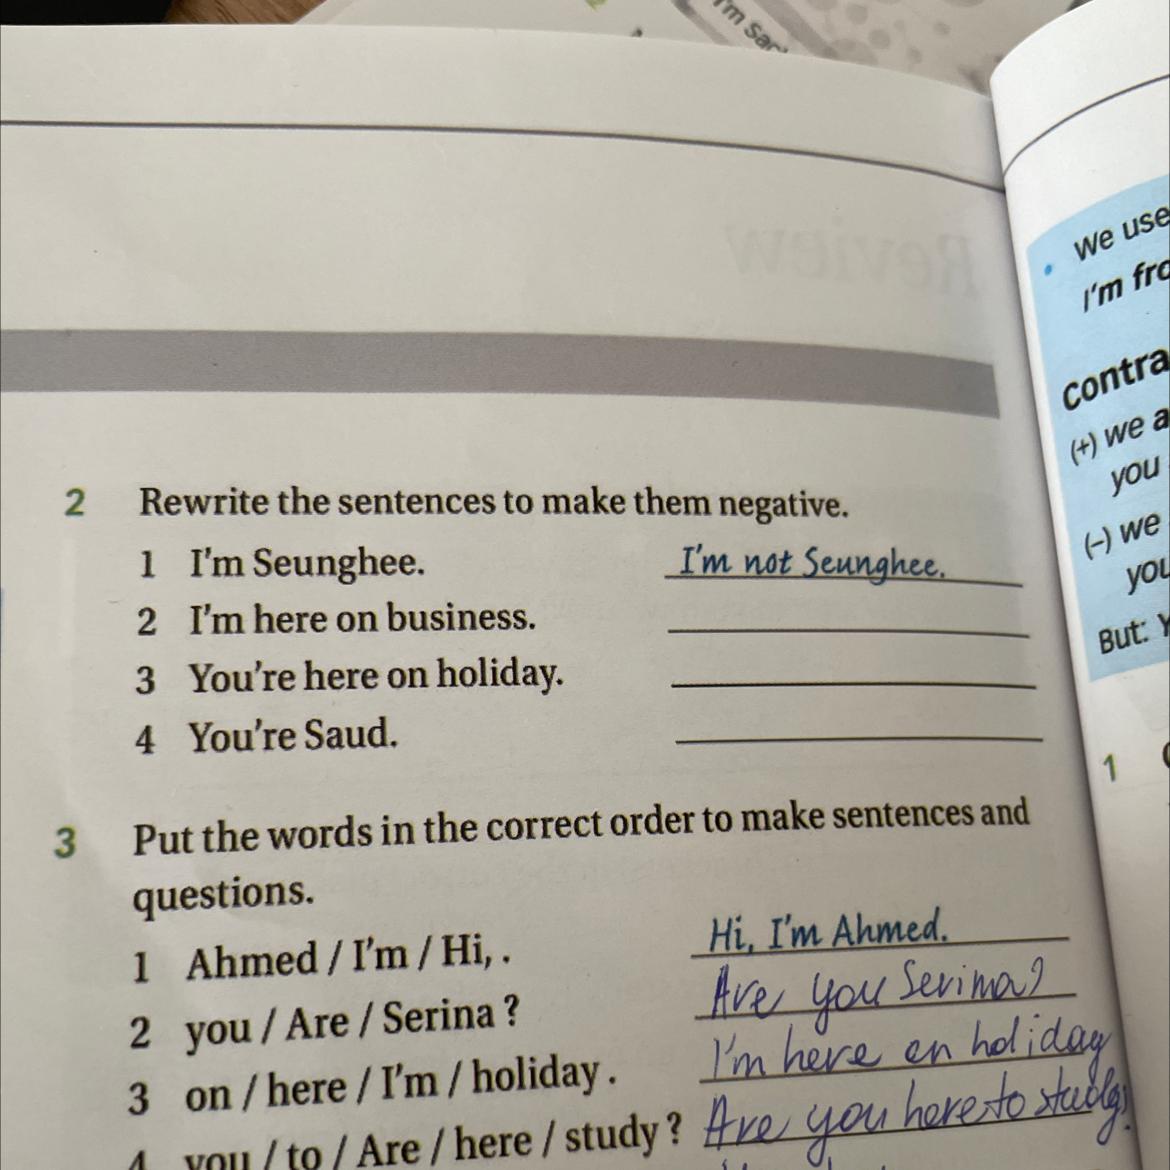 I'm sad
Review
2 Rewrite the sentences to make them negative.
1 I'm Seunghee. I'm not Seunghee.
2 I'm here on business.
3 You're here on holiday.
4 You're Saud.
3 Put the words in the correct order to make sentences and
questions.
1 Ahmed / I'm / Hi, . Hi, I'm Ahmed.
2 you / Are / Serina ? Are you Serima?
3 on / here / I'm / holiday . I'm here on holiday
4 you / to / Are / here / study ? Are you here to study?
• we use
I'm fro
contra
(+) we a
you
(–) we
you
But: Y
1